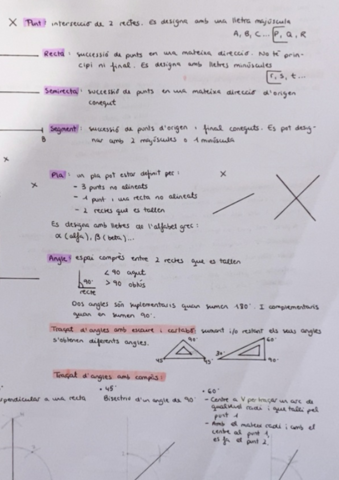 Punt: intersecció de 2 rectes. Es designa amb una lletra majúscula
A, B, C... P, Q, R
Recta: successió de punts en una mateixa direcció. No té prin-
cipi ni final. Es designa amb lletres minúscules
r, s, t...
Semirecta: successió de punts en una mateixa direcció d'origen
conegut
Segment: successió de punts d'origen i final coneguts. Es pot desig-
nar amb 2 majúscules o 1 minúscula
B
Pla: un pla pot estar definit per:
- 3 punts no alineats
- 1 punt i una recta no alineats
- 2 rectes que es tallen
Es designa amb lletres de l'alfabet grec:
α (alfa), β (beta)...
Angle: espai comprès entre 2 rectes que es tallen
< 90 agut
90°
> 90 obtús
recte
Dos angles són suplementaris quan sumen 180°. I complementaris
quan en sumen 90°.
Traçat d'angles amb escaire i cartabó: sumant i/o restant els seus angles
s'obtenen diferents angles.
90° 60°
45° 45° 30° 90°
Traçat d'angles amb compàs:
• 45° • 60°
perpendicular a una recta Bisectriu d'un angle de 90°
- Centre a V per traçar un arc de
qualsevol radi i que talli pel
punt 1
- Amb el mateix radi i amb el
centre al punt 1,
es fa el punt 2.